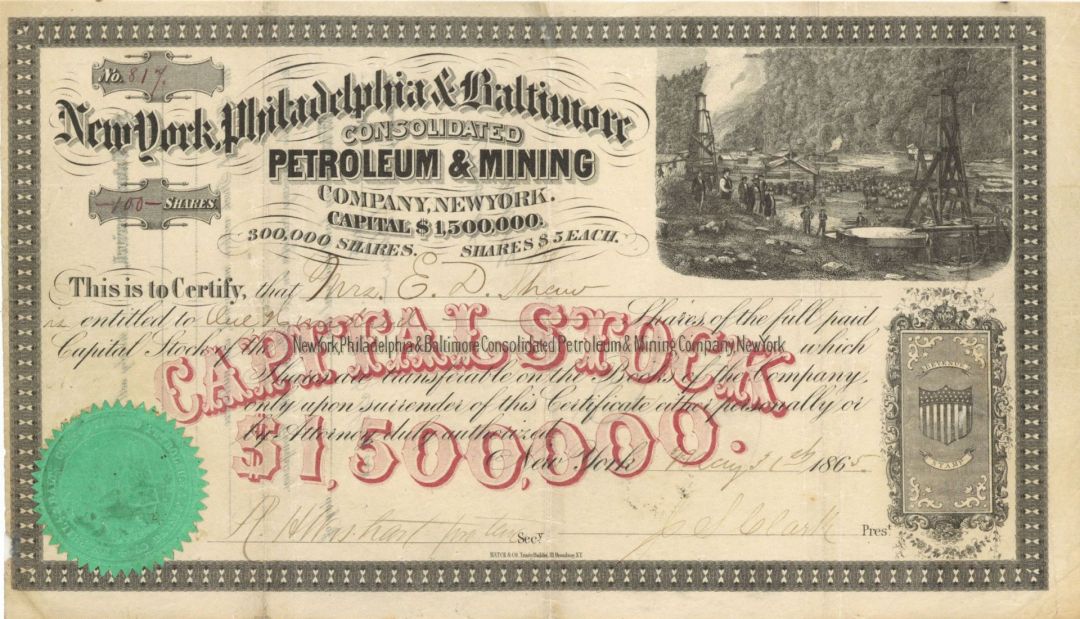 No. 817.
New York, Philadelphia & Baltimore
CONSOLIDATED
PETROLEUM & MINING
COMPANY, NEW YORK.
CAPITAL $1,500,000.
300,000 SHARES. SHARES $5 EACH.
100 SHARES
This is to Certify, that Mrs. E. D. Shaw
is entitled to One Hundred Shares of the full paid
Capital Stock of the New York, Philadelphia & Baltimore Consolidated Petroleum & Mining Company, New York which
Shares are transferable on the Books of the Company,
only upon surrender of this Certificate either personally or
by Attorney duly authorized.
CAPITAL STOCK
$1,500,000.
New York May 1865
Secy
J. S. Clark Prest
HATCH & CO. Trinity Building, 111 Broadway, N.Y.
REVENUE
STAMP